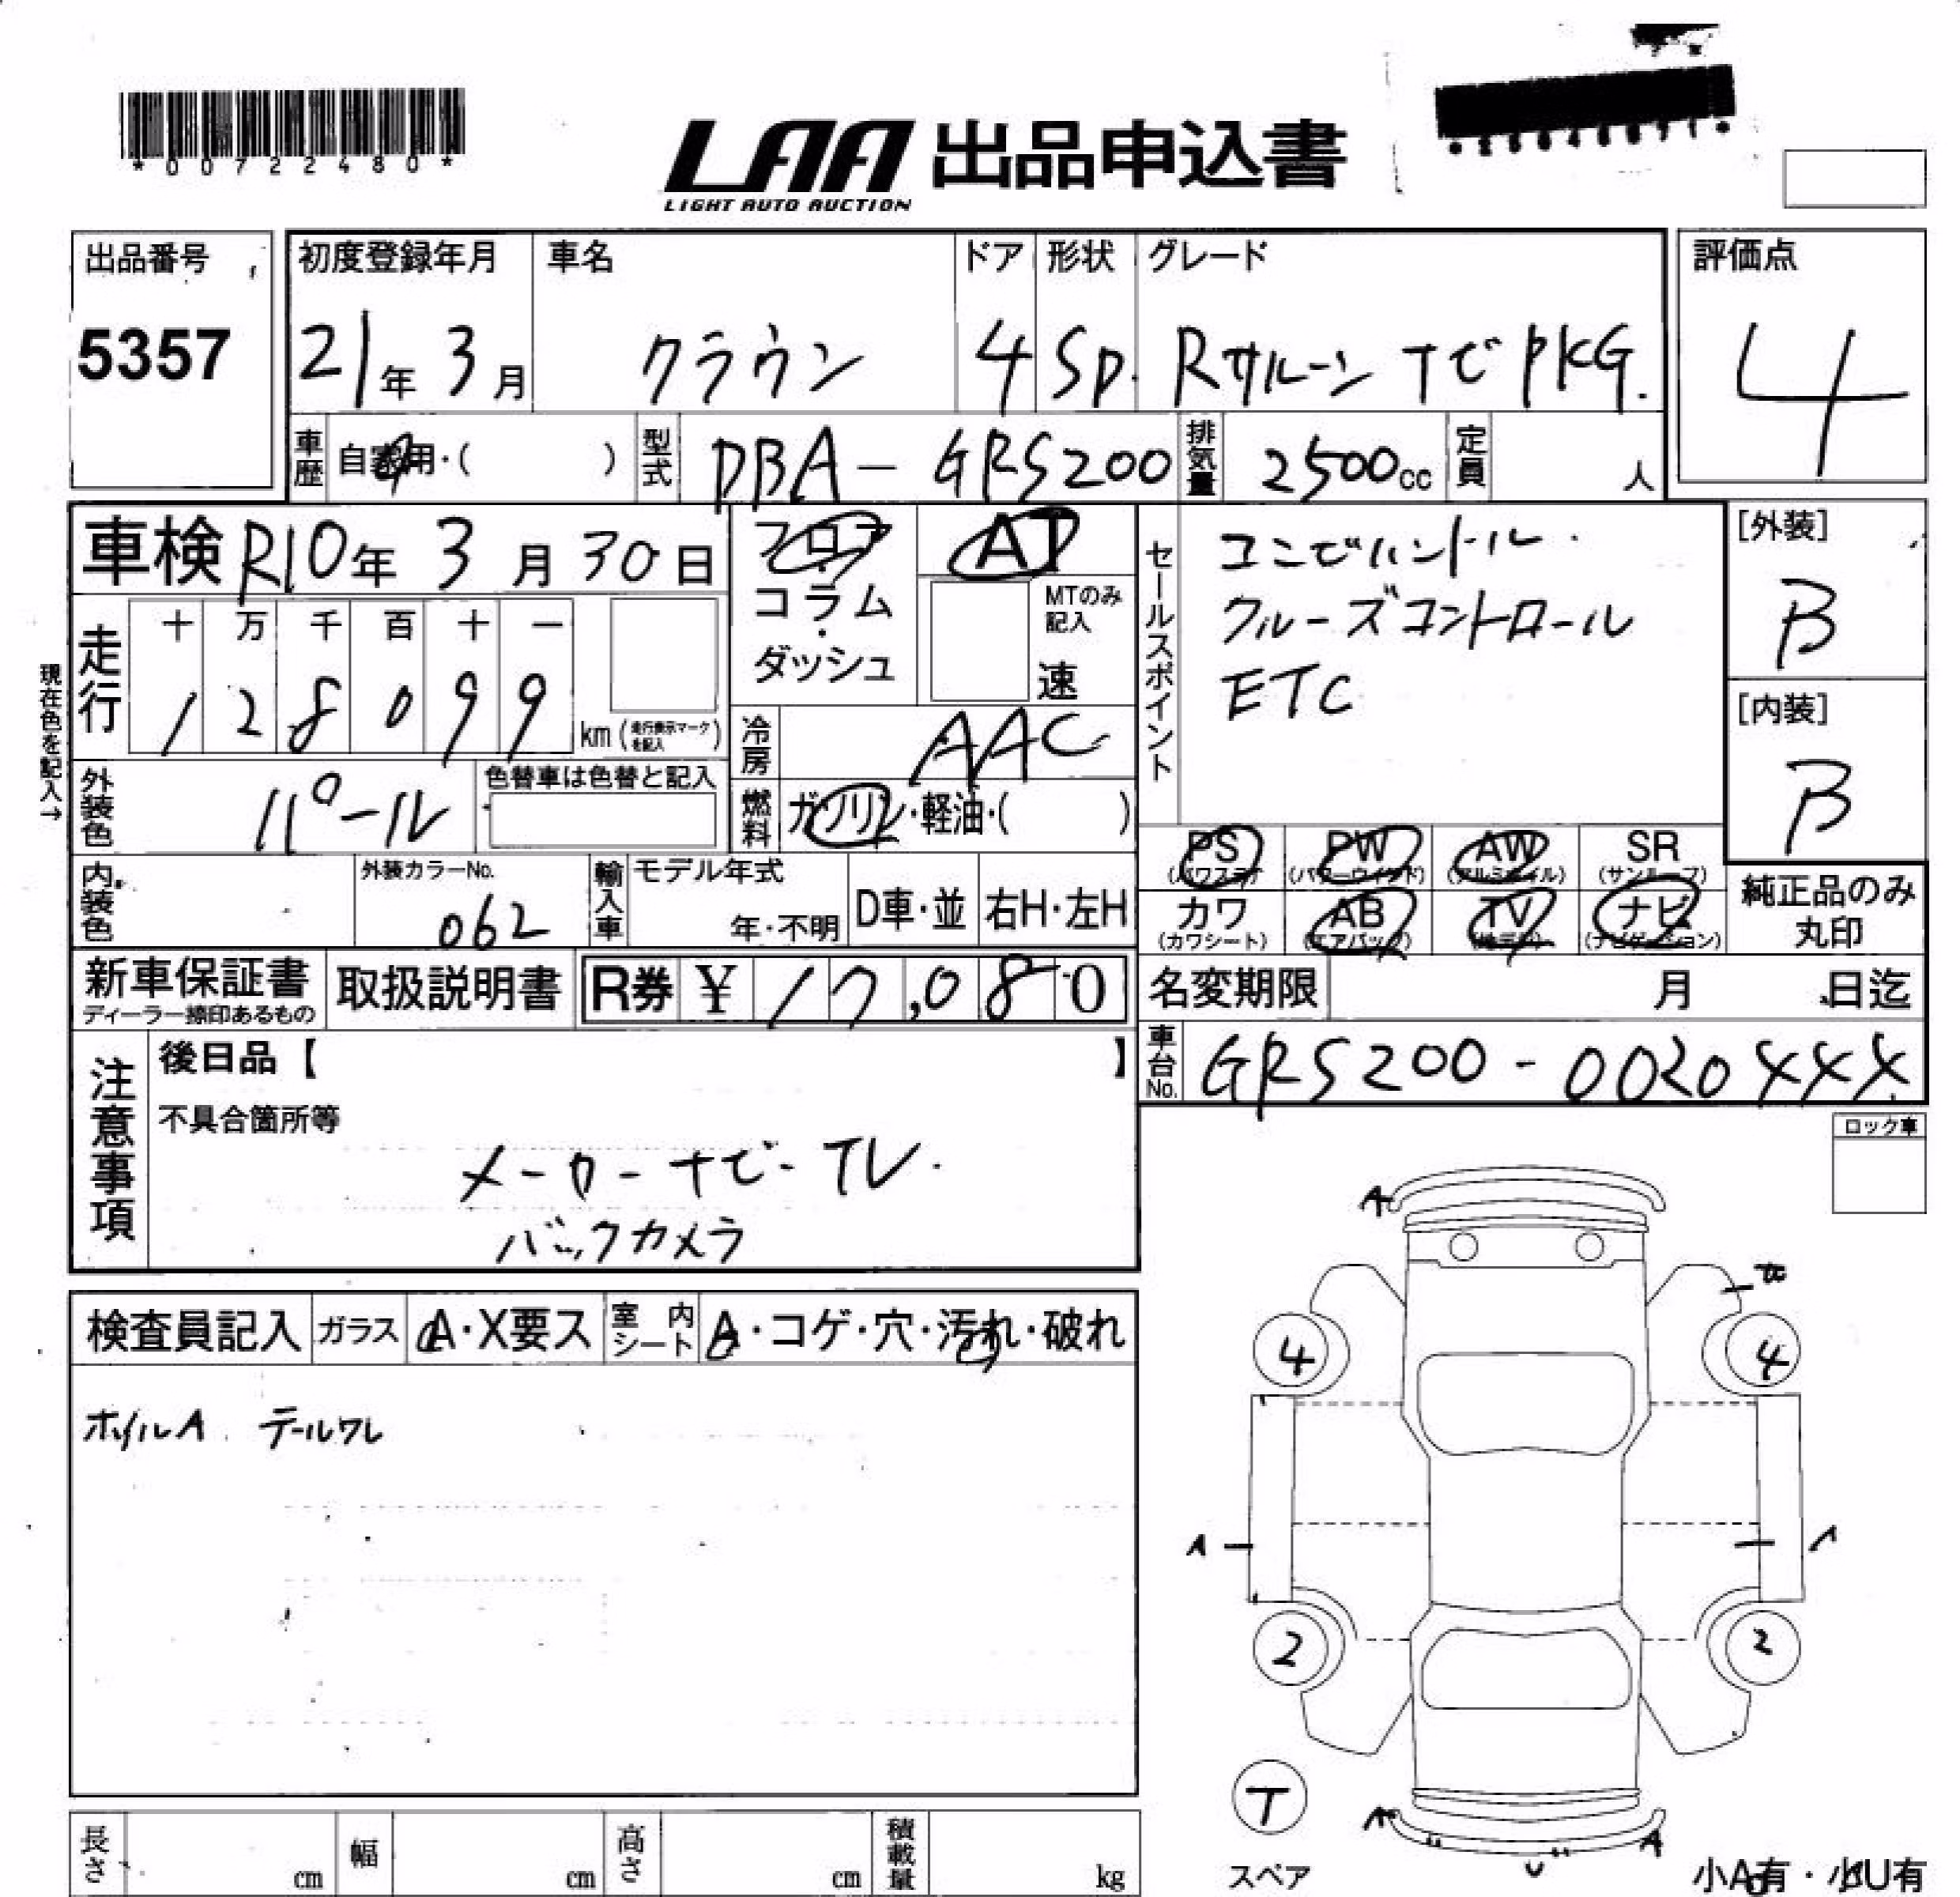 *00722480*
LAA 出品申込書
LIGHT AUTO AUCTION
出品番号
5357
初度登録年月
21年 3月
車名
クラウン
ドア
4
形状
SD.
グレード
Rサルーン ナビPKG.
評価点
4
車歴 自家用・( )
型式 DBA-GRS200
排気量 2500cc
定員 人
車検 R10年 3月 30日
フロア・コラム・ダッシュ
AT
MTのみ記入
速
セールスポイント
コンビハンドル.
クルーズコントロール
ETC
[外装]
B
[内装]
B
現在色を記入→
走行
十 万 千 百 十 一
1 2 8 0 9 9
km (走行表示マークを記入)
冷房 AAC
外装色 パール
色替車は色替と記入
燃料 ガソリン・軽油・( )
PS (パワステ)
PW (パワーウインド)
AW (アルミホイル)
SR (サンルーフ)
カワ (カワシート)
AB (エアバッグ)
TV (地デジ)
ナビ (ナビゲーション)
純正品のみ丸印
内装色
外装カラーNo.
062
輸入車
モデル年式
年・不明
D車・並
右H・左H
新車保証書
ディーラー捺印あるもの
取扱説明書
R券 ¥ 17,080
名変期限 月 日迄
車台No. GRS200-0020XXX
注意事項
後日品【 】
不具合箇所等
メーカーナビ-TV.
バックカメラ
ロック車
検査員記入
ガラス A・X要ス
室内シート A・コゲ・穴・汚れ・破れ
ホイルA テールワレ
A
4
4
A
2
2
T
スペア
A
A
小A有・小U有
長さ cm
幅 cm
高さ cm
積載量 kg